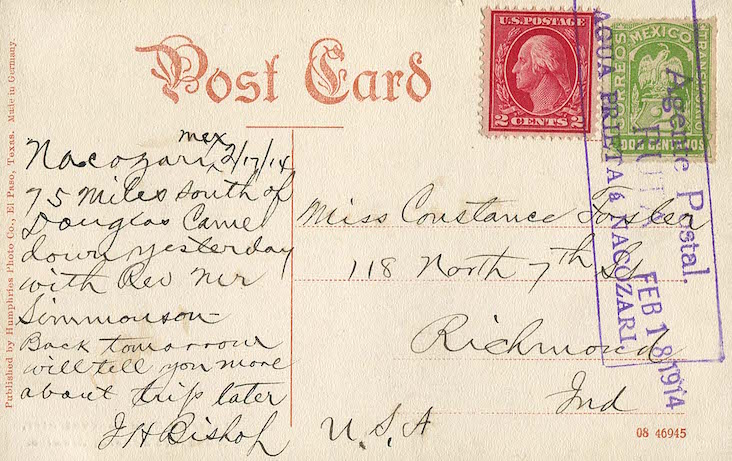 Post Card
U.S. POSTAGE
2 CENTS 2
CORREOS MEXICO TRANSITORIO
DOS CENTAVOS
Agente Postal.
RUTA
FEB 18 1914
AGUA PRIETA & NACOZARI.
Nacozari, Mex 2/17/14
75 Miles South of
Douglas Came
down yesterday
with Rev Mr
Simmonson
Back tomorrow
will tell you more
about trip later
J H Bishop
Miss Constance
118 North 7th St
Richmond
Ind
U.S.A
08 46945
Published by Humphries Photo Co., El Paso, Texas. Made in Germany.